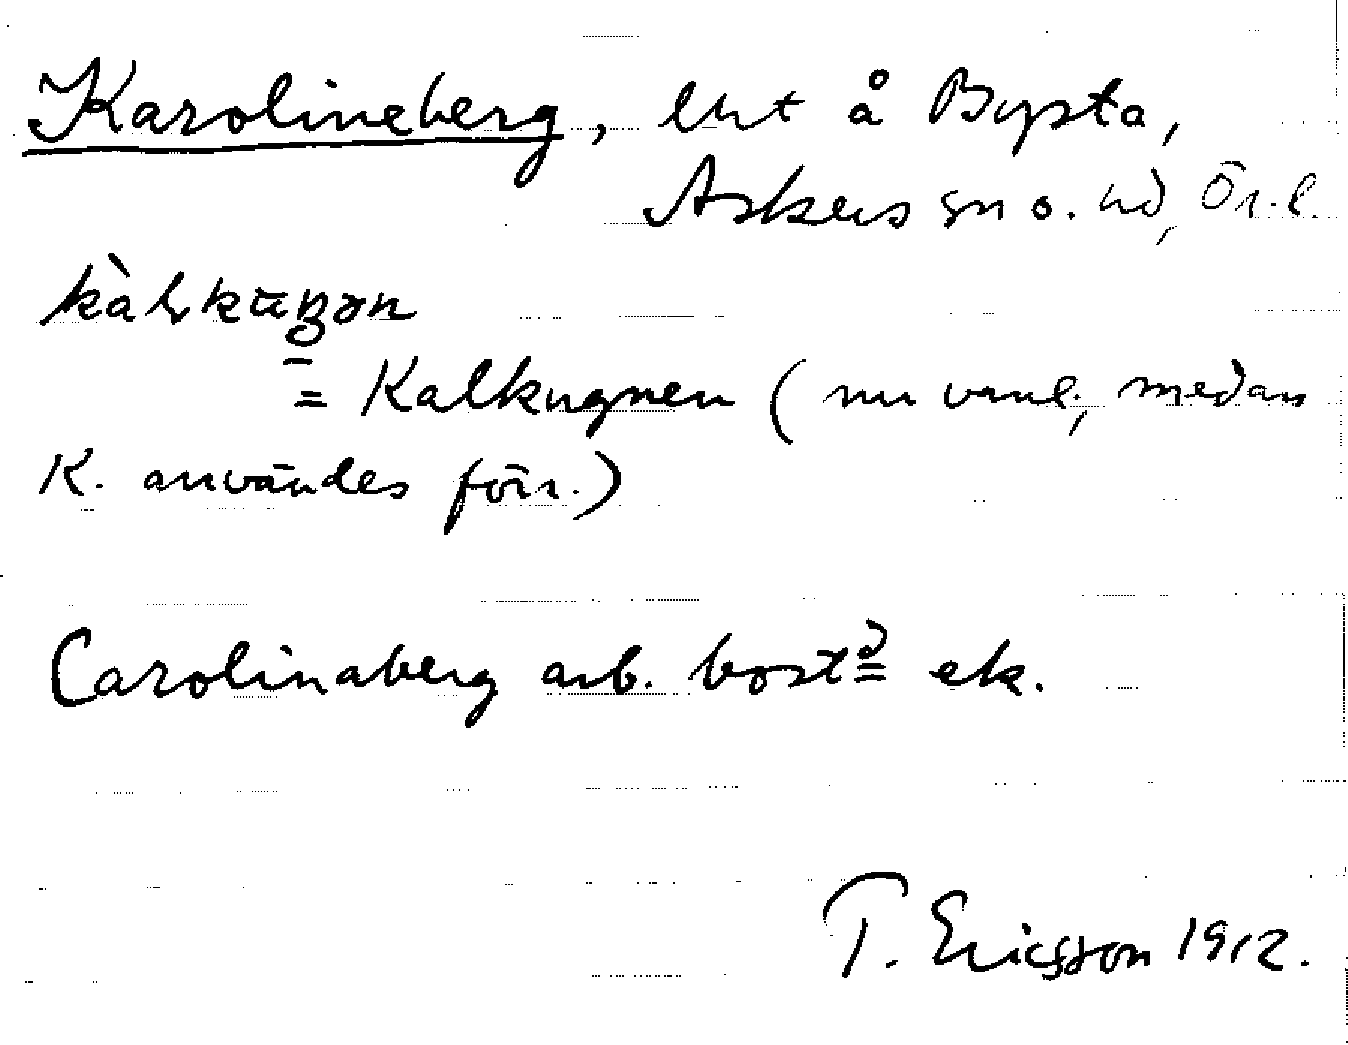 Karolineberg, lht å Bysta,
Askers sn o. hd, Ör. l.
= Kalkugnen (nu vanl., medan
K. användes förr.)
Carolinaberg arb. bost:d ek.
T. Ericsson 1912.